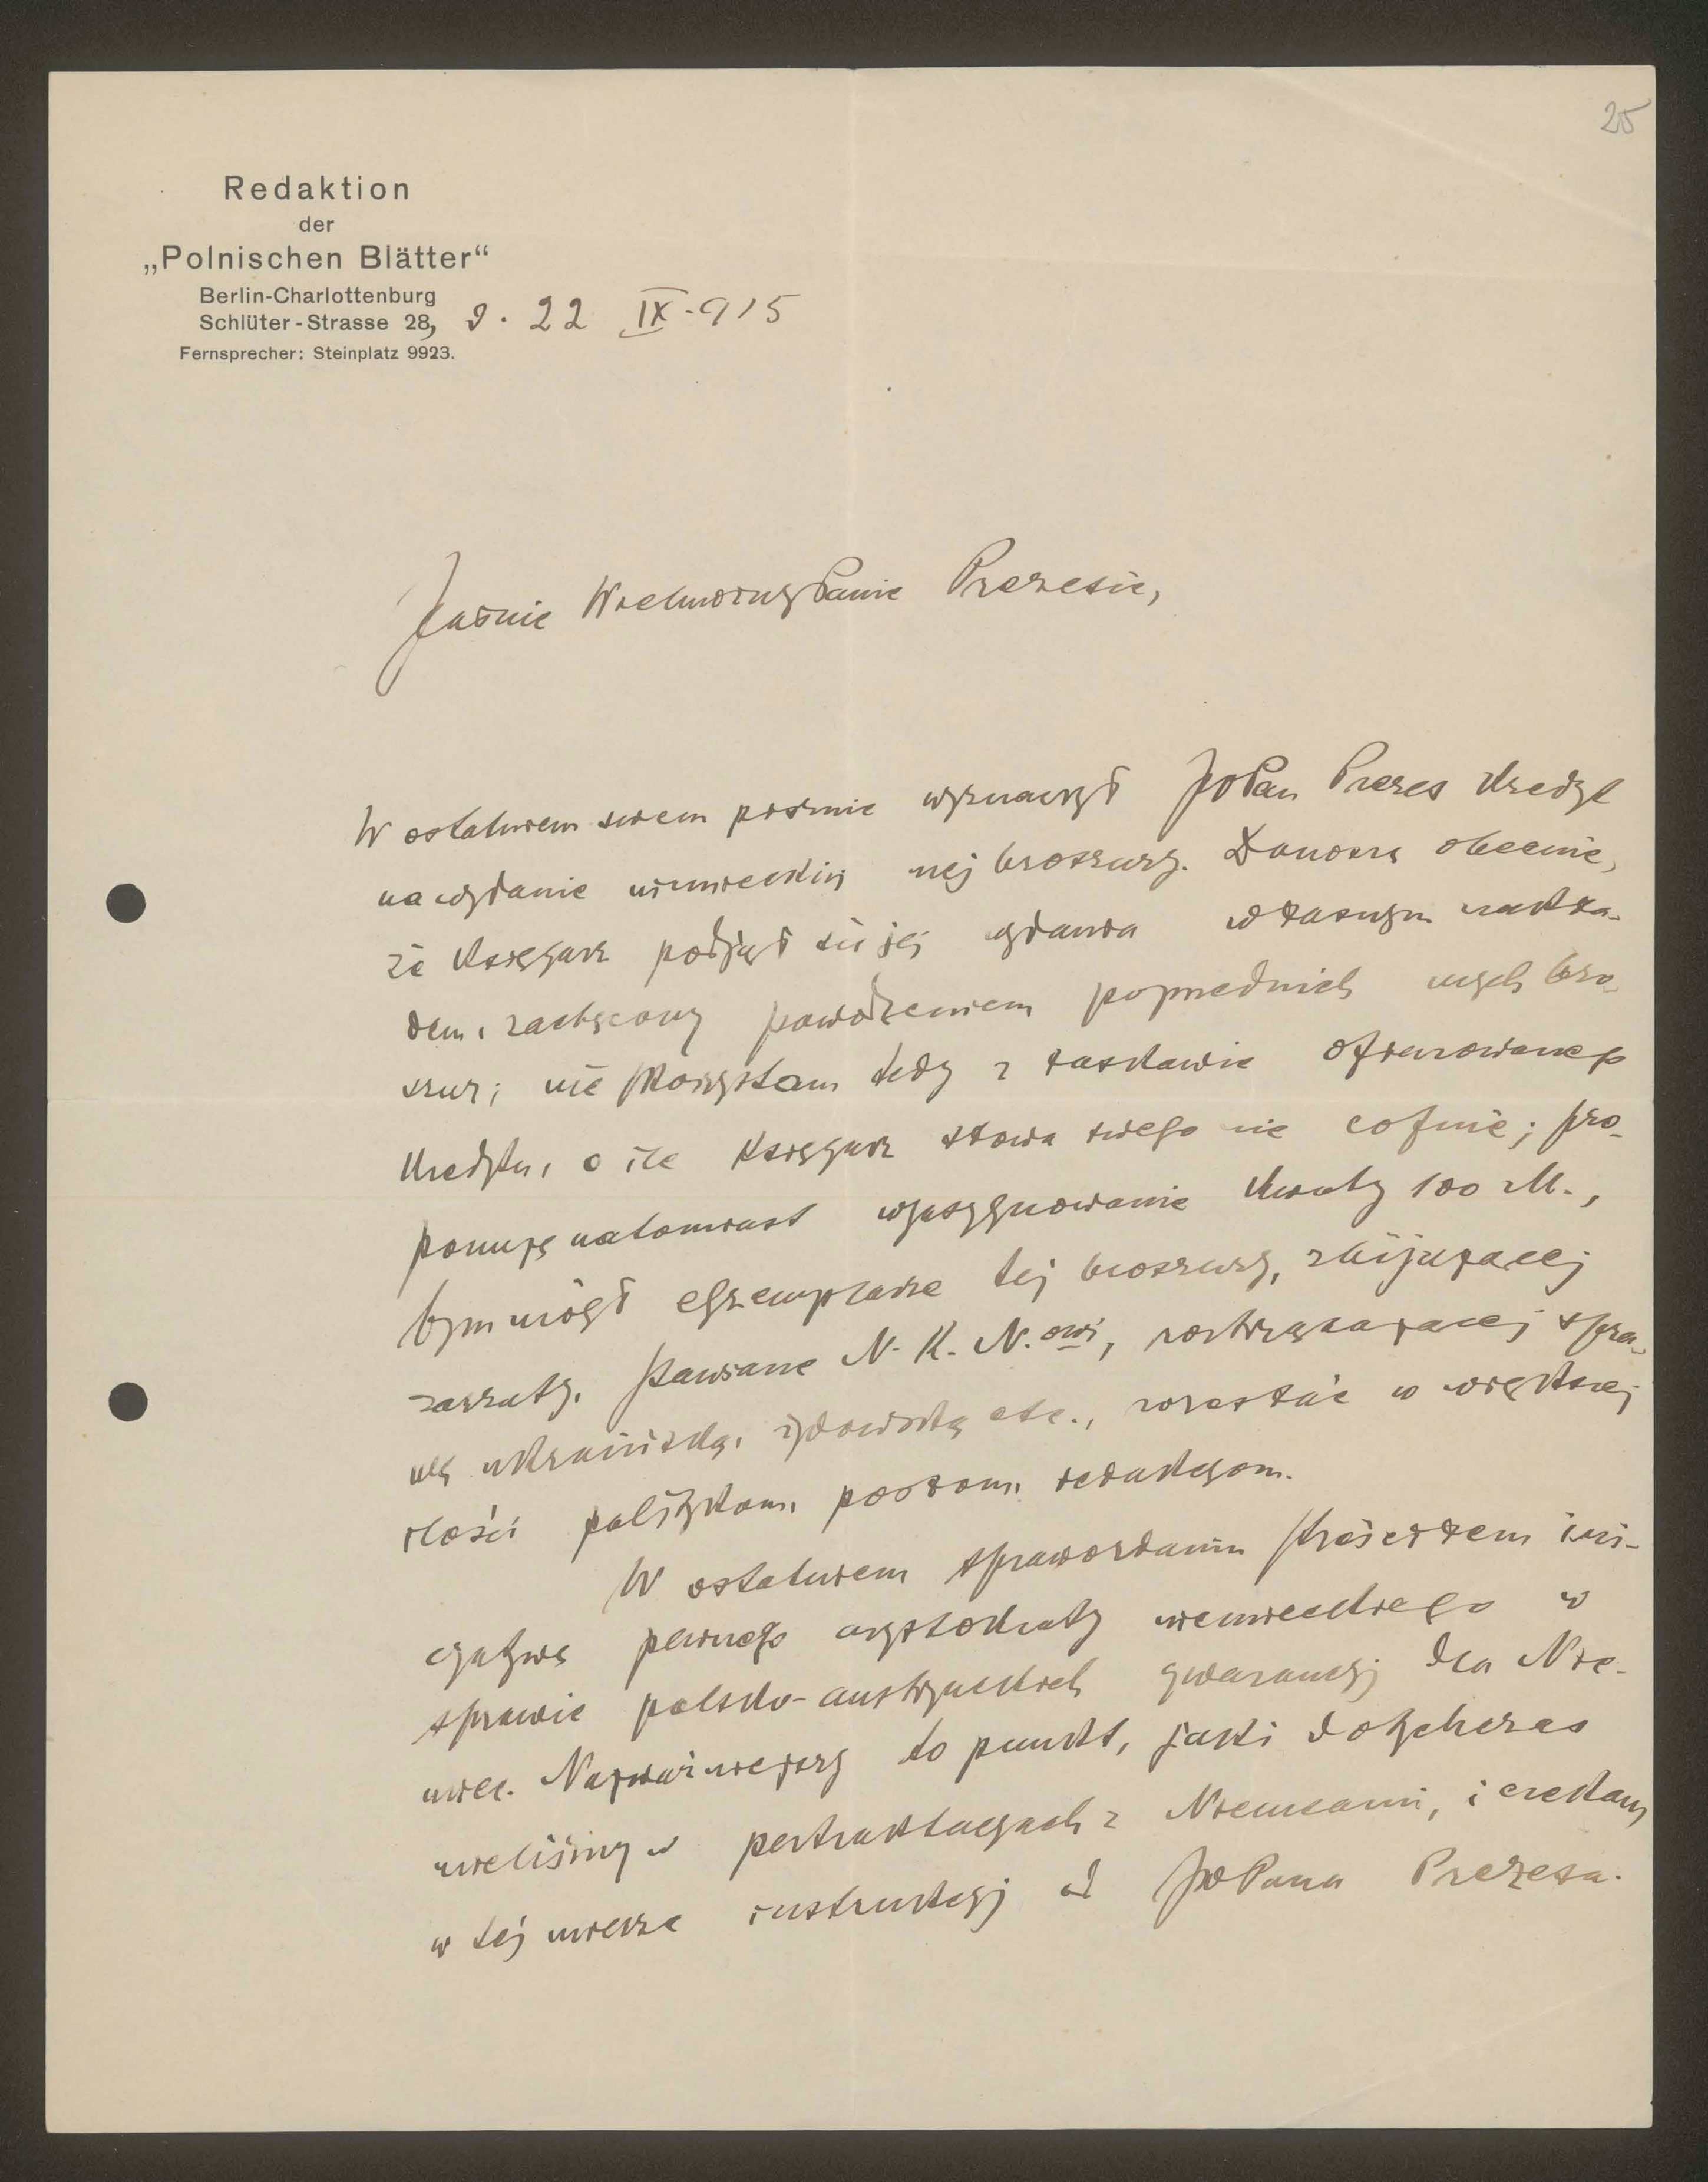 25
Redaktion
der
„Polnischen Blätter“
Berlin-Charlottenburg
Schlüter-Strasse 28, d. 22 IX.915
Fernsprecher: Steinplatz 9923.
Jaśnie Wielmożny Panie Prezesie,
W ostatniem swem piśmie wyznaczył JWPan Prezes kredyt
na wydanie niemieckiej mej broszury. Donoszę obecnie,
że księgarz podjął się jej wydania własnym nakła-
dem, zachęcony powodzeniem poprzednich mych bro-
szur; nie skorzystam tedy z łaskawie ofiarowanego
kredytu, o ile księgarz słowa swego nie cofnie; pro-
ponuję natomiast wyasygnowanie kwoty 100 M.,
bym mógł egzemplarze tej broszury, zbijającej
zarzuty, stawiane N. K. N.owi, roztrząsającej spra-
wę ukraińską, żydowską etc., rozesłać w większej
ilości politykom, posłom, redakcyom.
W ostatniem sprawozdaniu streściłem ini-
cyatywę pewnego arystokraty niemieckiego w
sprawie polsko-austryackich gwarancyj dla Nie-
miec. Najważniejszy to punkt, jaki dotychczas
mieliśmy w pertraktacyach z Niemcami, i czekam
w tej mierze instrukcyj od JWPana Prezesa.